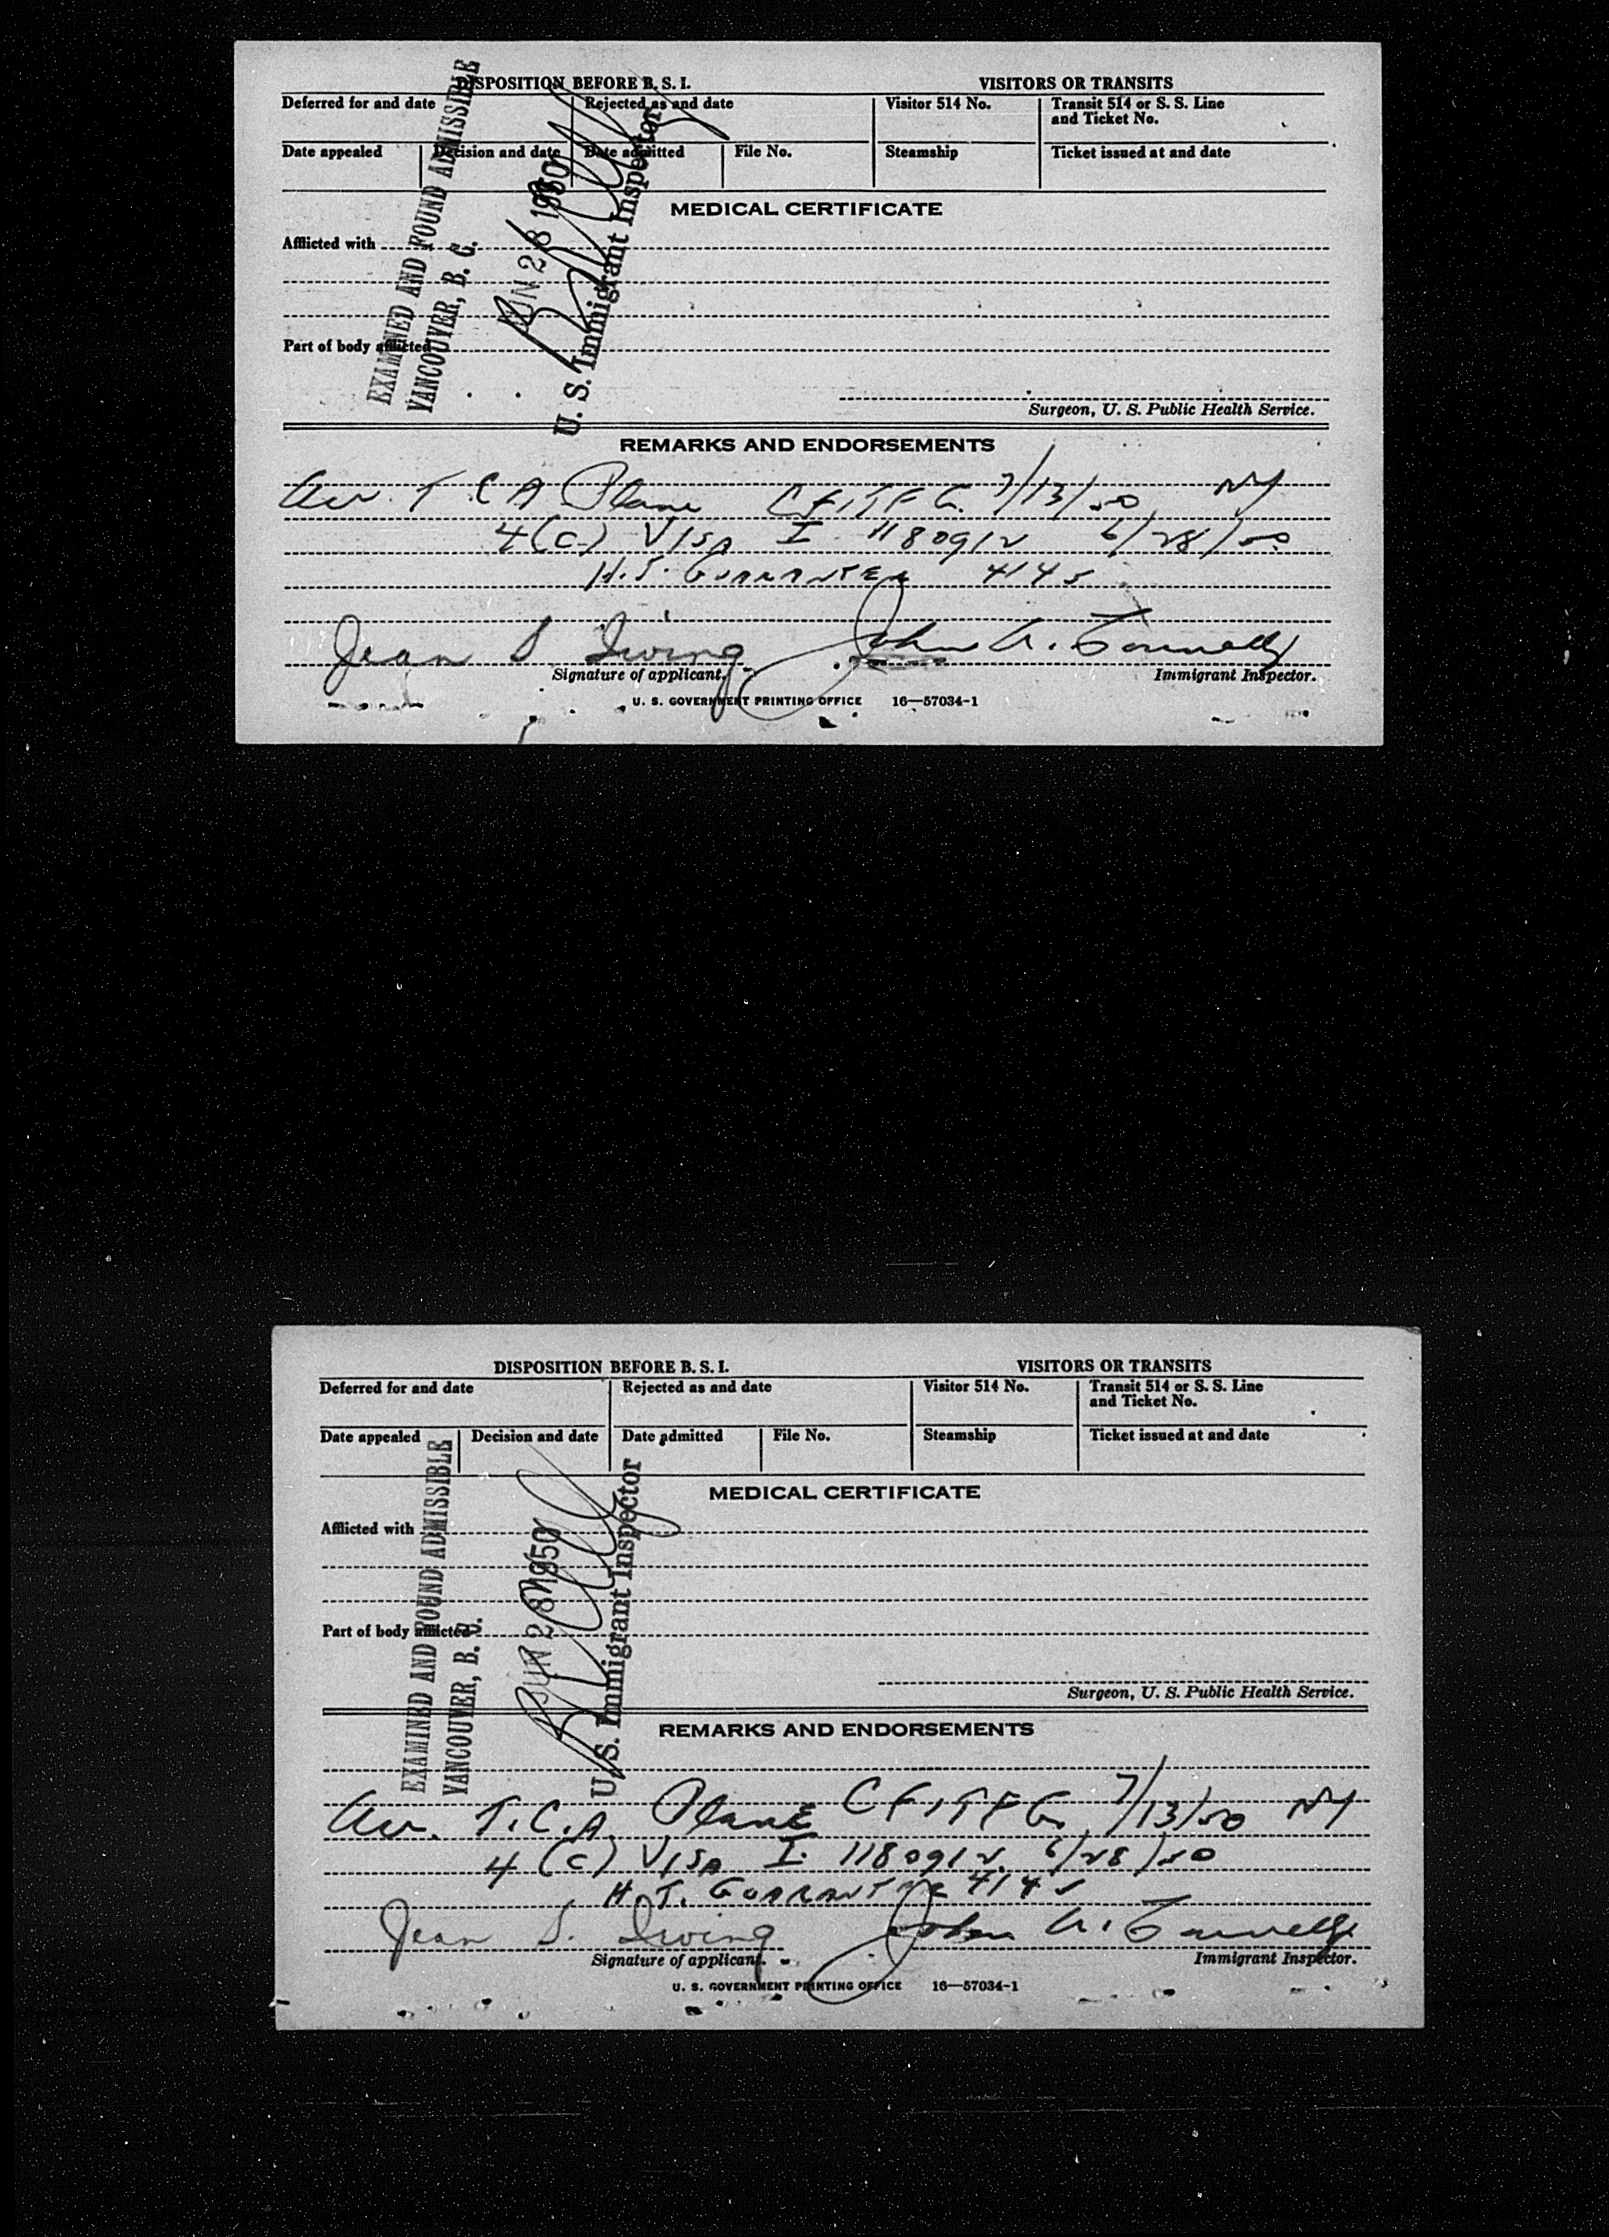 DISPOSITION BEFORE B. S. I. VISITORS OR TRANSITS
Deferred for and date Rejected as and date Visitor 514 No. Transit 514 or S. S. Line
and Ticket No.
Date appealed Decision and date Date admitted File No. Steamship Ticket issued at and date
MEDICAL CERTIFICATE
Afflicted with
Part of body afflicted
EXAMINED AND FOUND ADMISSIBLE
VANCOUVER, B. C.
JUN 28 1950
U. S. Immigrant Inspector
Surgeon, U. S. Public Health Service.
REMARKS AND ENDORSEMENTS
Arr. T C A Plane CF, TFG. 7/13/50 NY
4(C) VISA I 1180912 6/28/50
H.T. GUARANTEE 4145
Jean S Irving John A. Connelly
Signature of applicant. Immigrant Inspector.
U. S. GOVERNMENT PRINTING OFFICE 16—57034-1
DISPOSITION BEFORE B. S. I. VISITORS OR TRANSITS
Deferred for and date Rejected as and date Visitor 514 No. Transit 514 or S. S. Line
and Ticket No.
Date appealed Decision and date Date admitted File No. Steamship Ticket issued at and date
MEDICAL CERTIFICATE
Afflicted with
Part of body afflicted
EXAMINED AND FOUND ADMISSIBLE
VANCOUVER, B. C.
JUN 28 1950
U. S. Immigrant Inspector
Surgeon, U. S. Public Health Service.
REMARKS AND ENDORSEMENTS
Arr. T.C.A. Plane CF, TFG. 7/13/50 NY
4 (C) VISA I. 1180912. 6/28/50
H T. GUARANTEE 4145
Jean S. Irving John A. Connelly
Signature of applicant. Immigrant Inspector.
U. S. GOVERNMENT PRINTING OFFICE 16—57034-1